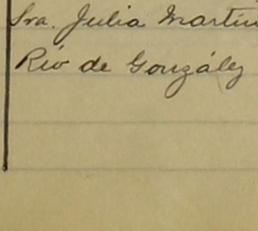 Sra. Julia Martín
Río de González